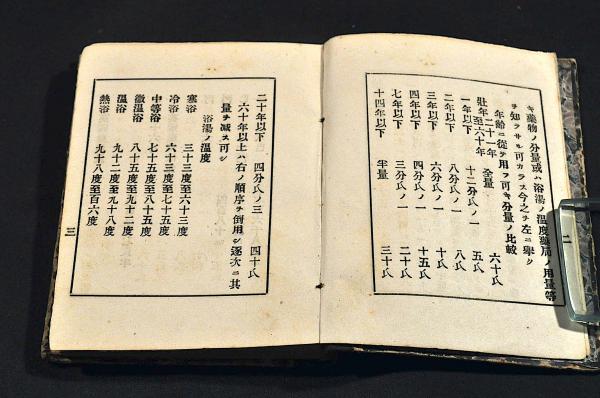 キ藥物ノ分量或ハ浴湯ノ溫度藥局ノ用量等
ヲ知ラサル可カラス今之ヲ左ニ擧ク
年齡ニ從テ用フ可キ分量ノ比較
二十一年
壯年至六十年 全量 六十氏
一年以下 十二分氏ノ一 五氏
二年以下 八分氏ノ一 八氏
三年以下 六分氏ノ一 十氏
四年以下 四分氏ノ一 十五氏
七年以下 三分氏ノ一 二十氏
十四年以下 半量 三十氏
二
二十年以下 四分氏ノ三 四十氏
六十年以上ハ右ノ順序ヲ倒用シ逐次ニ其
量ヲ減ス可シ
浴湯ノ溫度
寒浴 三十三度至六十三度
冷浴 六十三度至七十五度
中等浴 七十五度至八十五度
微溫浴 八十五度至九十二度
溫浴 九十二度至九十八度
熱浴 九十八度至百六度
三